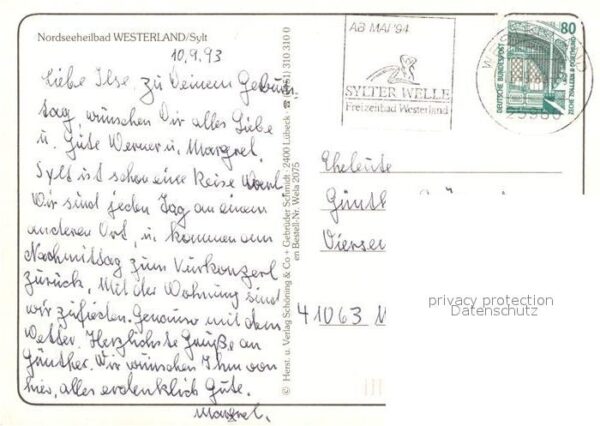 Nordseeheilbad WESTERLAND/Sylt
10.9.93
Liebe Ilse, zu Deinem Geburts
tag wünschen Dir alles Liebe
u. Gute Werner u. Margret.
Sylt ist schon eine Reise Wert
Wir sind jeden Tag an einem
anderen Ort, u. kommen am
Nachmittag zum Kurkonzert
zurück. Mit der Wohnung sind
wir zufrieden. Genauso mit dem
Wetter. Herzlichste Grüße an
Günther. Wir wünschen Ihm von
hier, alles erdenklich Gute.
Margret.
© Herst. u. Verlag Schöning & Co + Gebrüder Schmidt · 2400 Lübeck · ☎ (0451) 310 310 0
en Bestell-Nr. Wela 2075
AB MAI '94
SYLTER WELLE
Freizeitbad Westerland
80
DEUTSCHE BUNDESPOST
ZECHE ZOLLERN II DORTMUND
25980
Eheleute
Günth
Vierse
41063 M
privacy protection
Datenschutz